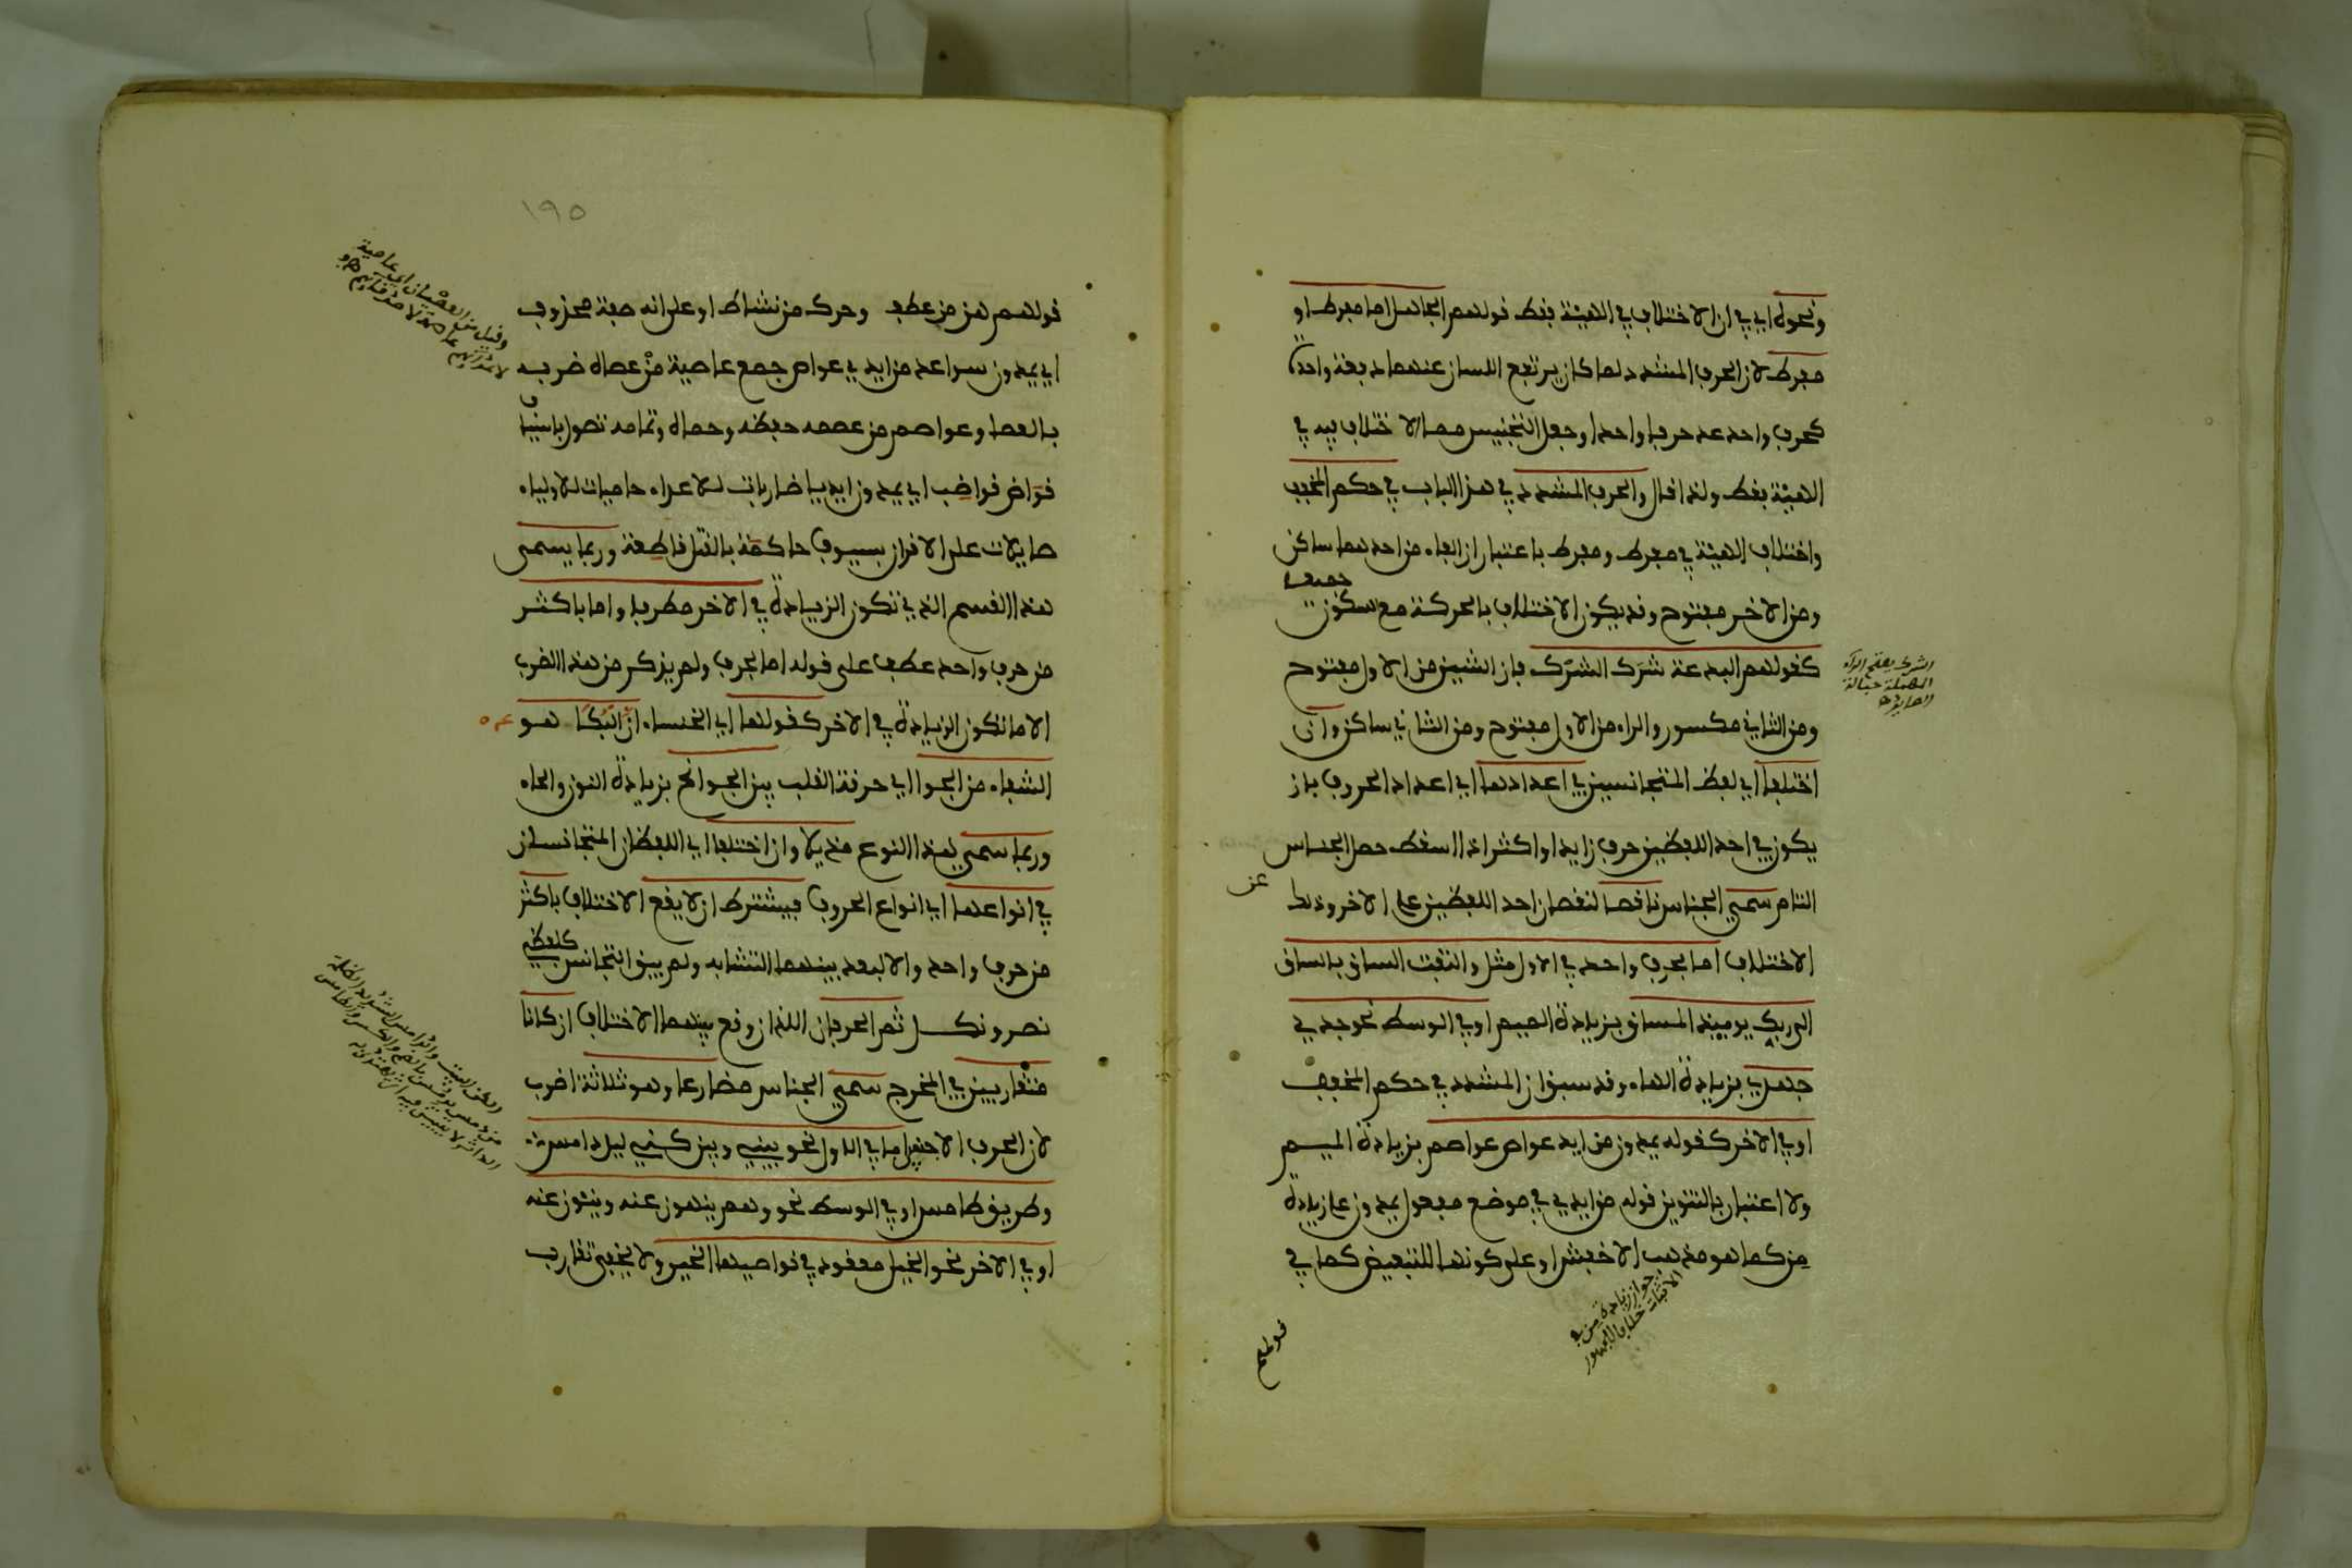 ونحوه اي في ان الاختلاف في الهيئة فقط قولهم الجاهل اما مفرط او
مفرط لان الحرف المشدد لما كان يرتفع اللسان عنهما دفعة واحدة
كحرف واحد عد حرفا واحدا وجعل التجنيس مما الاختلاف فيه في
الهيئة فقط ولذا قال والحرف المشدد في هذا الباب في حكم المخفف
واختلاف الهيئة في مفرط ومفرط باعتبار ان الفاء من احدهما ساكن
ومن الاخر مفتوح وقد يكون الاختلاف بالحركة مع السكون جميعا
كقولهم البدعة شرك الشرك فان الشين من الاول مفتوح
ومن الثاني مكسور والراء من الاول مفتوح ومن الثاني ساكن وان
اختلفا اي لفظ المتجانسين في اعدادهما اي اعداد الحروف بان
يكون في احد اللفظين حرف زايد او اكثر اذا اسقط حصل الجناس
التام سمي الجناس ناقصا لنقصان احد اللفظين على الاخر وذلك
عن
الاختلاف اما بحرف واحد في الاول مثل والتفت الساق بالساق
الى ربك يوميذ المساق بزيادة الميم او في الوسط نحو جدي
جهدي بزيادة الهاء وقد سبق ان المشدد في حكم المخفف
او في الاخر كقوله يمدون من ايد عواص عواصم بزيادة الميم
ولا اعتبار بالتنوين قوله من ايد في موضع مفعول يمدون على زيادة
من كما هو مذهب الاخفش او على كونها للتبعيض كما في
الشرك بفتح الراء
المهملة حبالة
الصايد
جواز زيادة من في
الاثبات خلاف الجمهور
قولهم
١٩٥
قولهم هز من عطفه وحرك من نشاط او على انه صفة محذوف
اي يمدون سواعد من ايد في عواص جمع عاصية من عصاه ضربه
بالعصا وعواصم من عصمه حفظه وحماه وتمامه تصول باسياف
قواض قواضب اي يمدون ايديا ضاربات للاعداء حاميات للاولياء
صايلات على الاقران بسيوف حاكمة بالقتل قاطعة وربما يسمى
هذا القسم الذي تكون الزيادة في الاخر مطرفا واما باكثر
من حرف واحد عطف على قوله اما بحرف ولم يذكر من هذا الضرب
الا ما تكون الزيادة في الاخر كقولها اي الخنساء ان البكا هو
الشفاء من الجوا اي حرقة القلب بين الجوانح بزيادة النون والحاء
وربما سمي هذا النوع مذيلا وان اختلفا اي اللفظان المتجانسان
في انواعها اي انواع الحروف فيشترط ان لا يقع الاختلاف باكثر
من حرف واحد والا لبعد بينهما التشابه ولم يبق التجانس كلفظي
نصر ونكل ثم الحرفان اللذان وقع بينهما الاختلاف ان كانا
متقاربين في المخرج سمي الجناس مضارعا وهو ثلاثة اضرب
لان الحرف الاجنبي اما في الاول نحو بيني وبين كني ليل دامس
وطريق طامس او في الوسط نحو وهم ينهون عنه وينئون عنه
او في الاخر نحو الخيل معقود في نواصيها الخير ولا يخفى تقارب
وقيل من العصيان اي عاصية